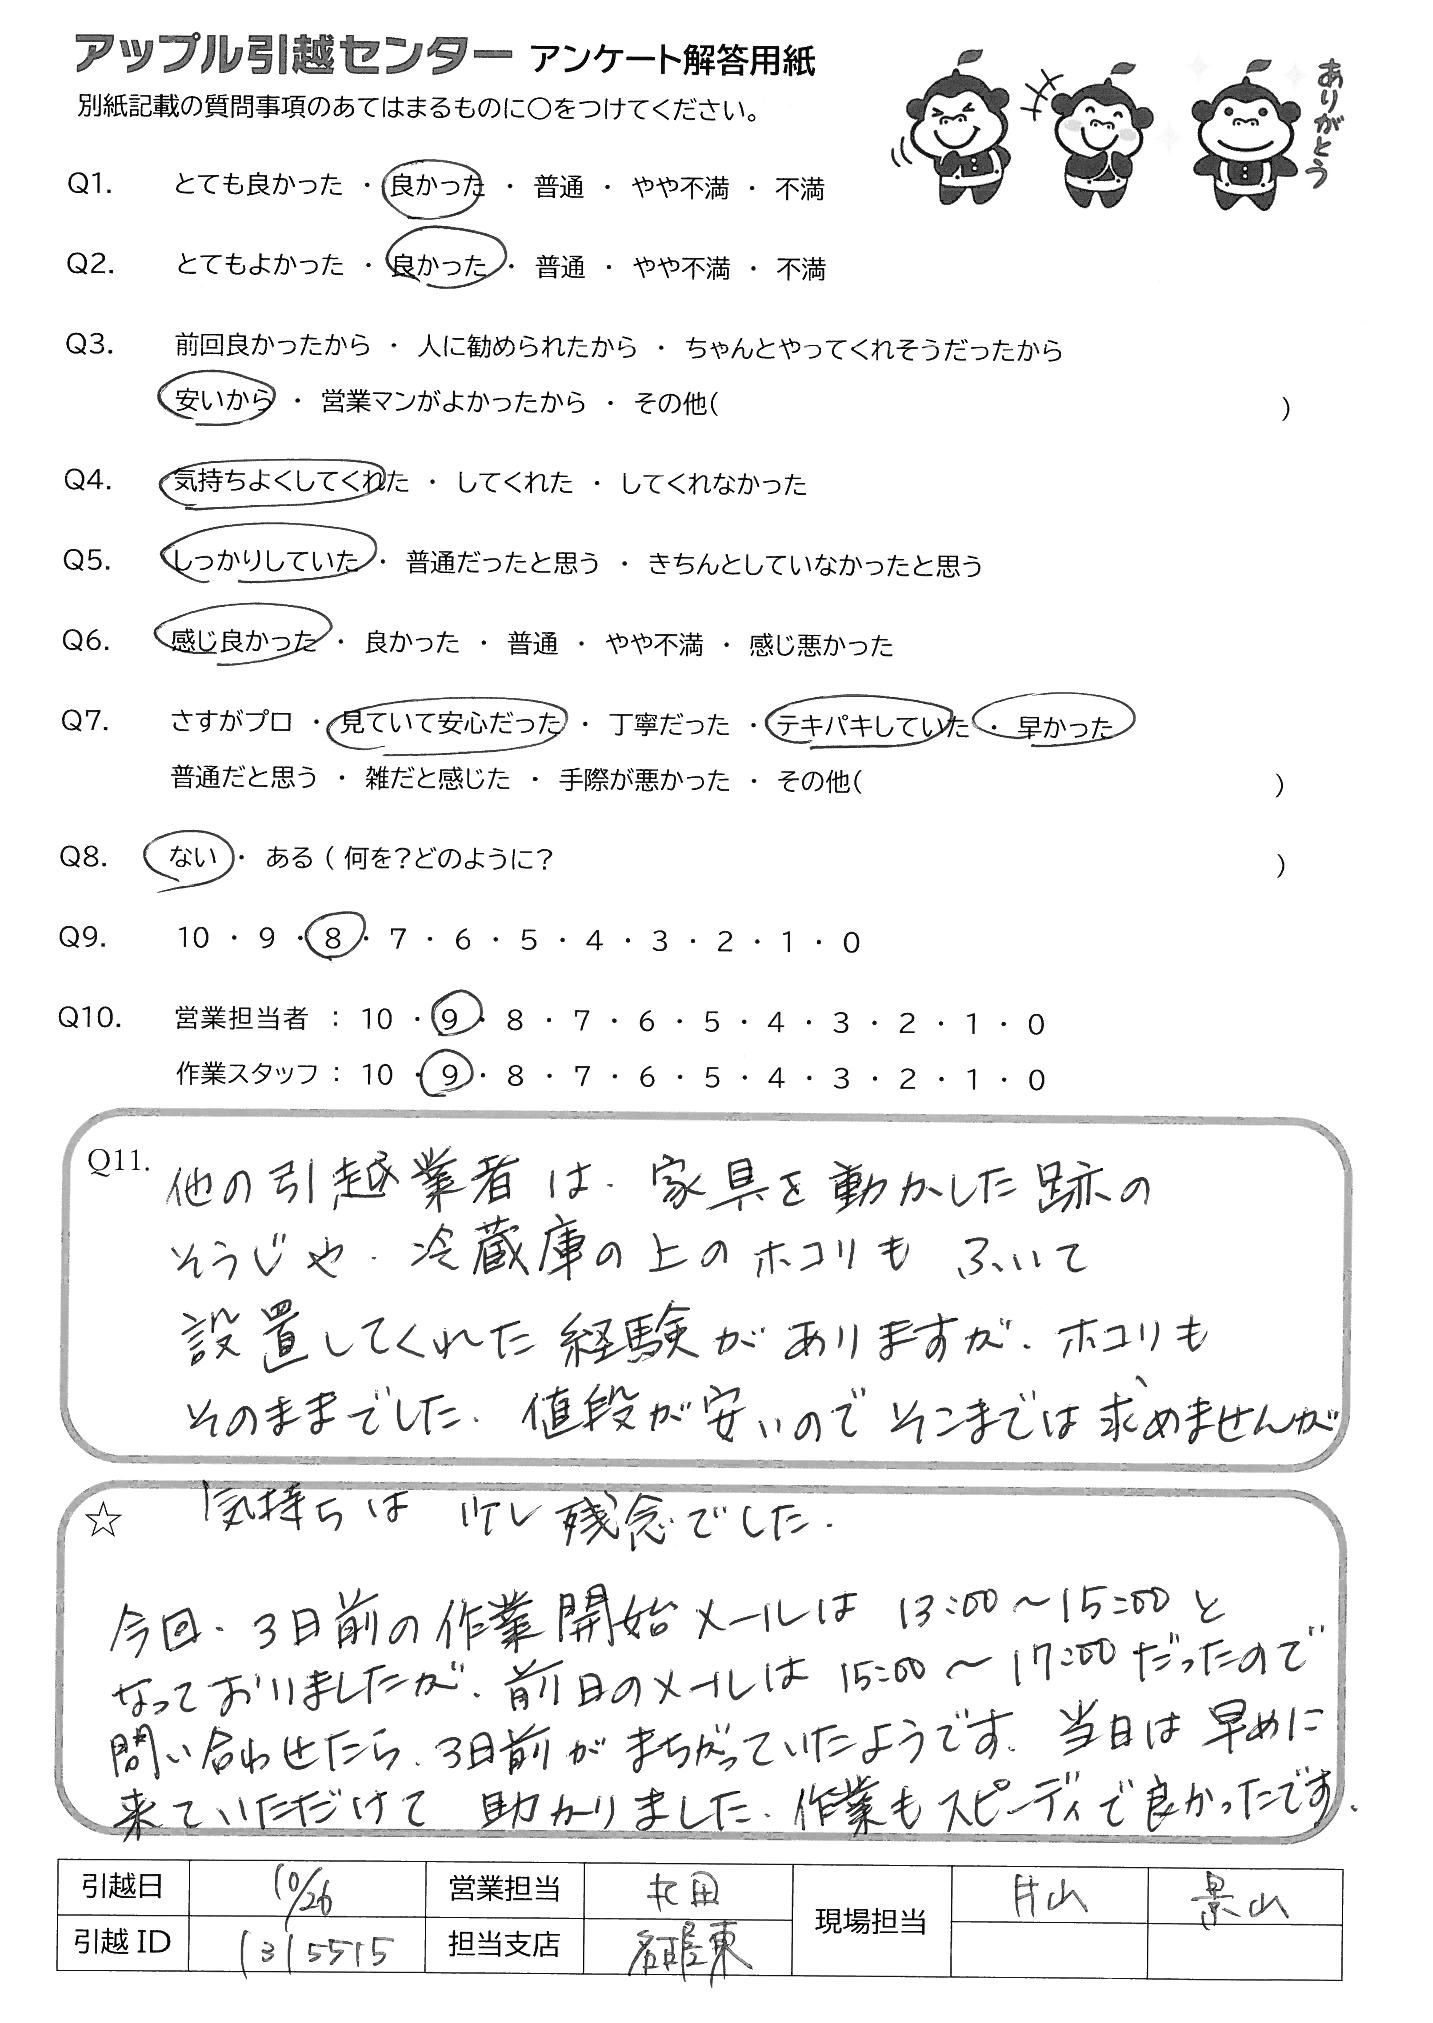 アップル引越センター アンケート解答用紙
別紙記載の質問事項のあてはまるものに○をつけてください。
ありがとう
Q1. とても良かった ・ 良かった ・ 普通 ・ やや不満 ・ 不満
Q2. とてもよかった ・ 良かった ・ 普通 ・ やや不満 ・ 不満
Q3. 前回良かったから ・ 人に勧められたから ・ ちゃんとやってくれそうだったから
安いから ・ 営業マンがよかったから ・ その他( )
Q4. 気持ちよくしてくれた ・ してくれた ・ してくれなかった
Q5. しっかりしていた ・ 普通だったと思う ・ きちんとしていなかったと思う
Q6. 感じ良かった ・ 良かった ・ 普通 ・ やや不満 ・ 感じ悪かった
Q7. さすがプロ ・ 見ていて安心だった ・ 丁寧だった ・ テキパキしていた ・ 早かった
普通だと思う ・ 雑だと感じた ・ 手際が悪かった ・ その他( )
Q8. ない ・ ある ( 何を?どのように? )
Q9. 10 ・ 9 ・ 8 ・ 7 ・ 6 ・ 5 ・ 4 ・ 3 ・ 2 ・ 1 ・ 0
Q10. 営業担当者 : 10 ・ 9 ・ 8 ・ 7 ・ 6 ・ 5 ・ 4 ・ 3 ・ 2 ・ 1 ・ 0
作業スタッフ : 10 ・ 9 ・ 8 ・ 7 ・ 6 ・ 5 ・ 4 ・ 3 ・ 2 ・ 1 ・ 0
Q11. 他の引越業者は、家具を動かした跡の
そうじや、冷蔵庫の上のホコリも ふいて
設置してくれた経験がありますが、ホコリも
そのままでした。値段が安いのでそこまでは求めませんが
☆ 気持ちは 少し残念でした。
今回、3日前の作業開始メールは 13:00〜15:00と
なっておりましたが、前日のメールは 15:00〜17:00だったので
問い合わせたら、3日前がまちがっていたようです。当日は早めに
来ていただけて 助かりました。作業もスピーディで良かったです。
引越日 10/26 営業担当 松田 現場担当 片山 景山
引越ID 1315515 担当支店 名古屋東